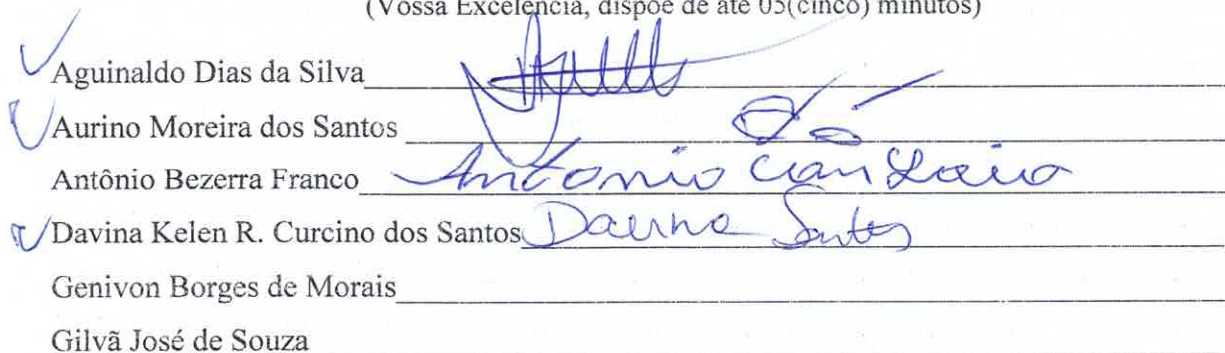 (Vossa Excelência, dispõe de até 05(cinco) minutos)
Aguinaldo Dias da Silva
Aurino Moreira dos Santos
Antônio Bezerra Franco Antonio
Davina Kelen R. Curcino dos Santos Davina Santos
Genivon Borges de Morais
Gilvã José de Souza